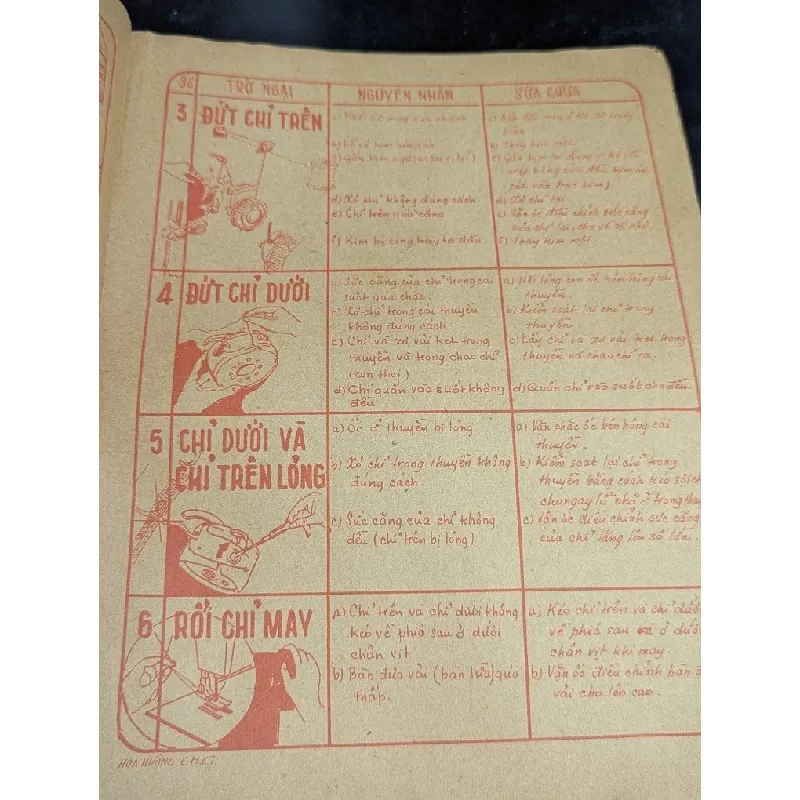 36 TRỞ NGẠI NGUYÊN NHÂN SỬA CHỮA
3 ĐỨT CHỈ TRÊN
b) Thay kim mới.
d) Xỏ chỉ không đúng cách
e) Chỉ trên quá căng
f) Kim bị cong hay tà đầu
d) Xỏ chỉ lại.
e) Vặn ốc điều chỉnh sức căng
của chỉ lại, cho về số nhỏ
f) Thay kim mới
4 ĐỨT CHỈ DƯỚI
a) Sức căng của chỉ trong cái
suốt quá chặc.
b) Xỏ chỉ trong cái thuyền
không đúng cách
c) Chỉ và xơ vải kẹt trong
thuyền và trong chao chỉ
d) Chỉ quấn vào suốt không
đều
a) Nới lỏng con ốc bên hông cái
thuyền.
b) Kiểm soát lại chỉ trong
thuyền.
c) Lấy chỉ và xơ vải kẹt trong
thuyền và chao chỉ ra.
d) Quấn chỉ vào suốt cho đều.
5 CHỈ DƯỚI VÀ
CHỈ TRÊN LỎNG
a) Ốc ở thuyền bị lỏng
b) Xỏ chỉ trong thuyền không
đúng cách.
c) Sức căng của chỉ không
đều (chỉ trên bị lỏng)
a) Vặn chặc ốc bên hông cái
thuyền.
b) Kiểm soát lại chỉ trong
thuyền bằng cách kéo sợi chỉ
c) Vặn ốc điều chỉnh sức căng
của chỉ tăng lên số lớn.
6 RỐI CHỈ MAY
a) Chỉ trên và chỉ dưới không
kéo về phía sau ở dưới
chân vịt
b) Bàn đưa vải (bàn lừa) quá
thấp.
a) Kéo chỉ trên và chỉ dưới
về phía sau và ở dưới
chân vịt khi may.
b) Vặn ốc điều chỉnh bàn đ
vải cho lên cao.
HOA HƯỜNG E.M.K.T.